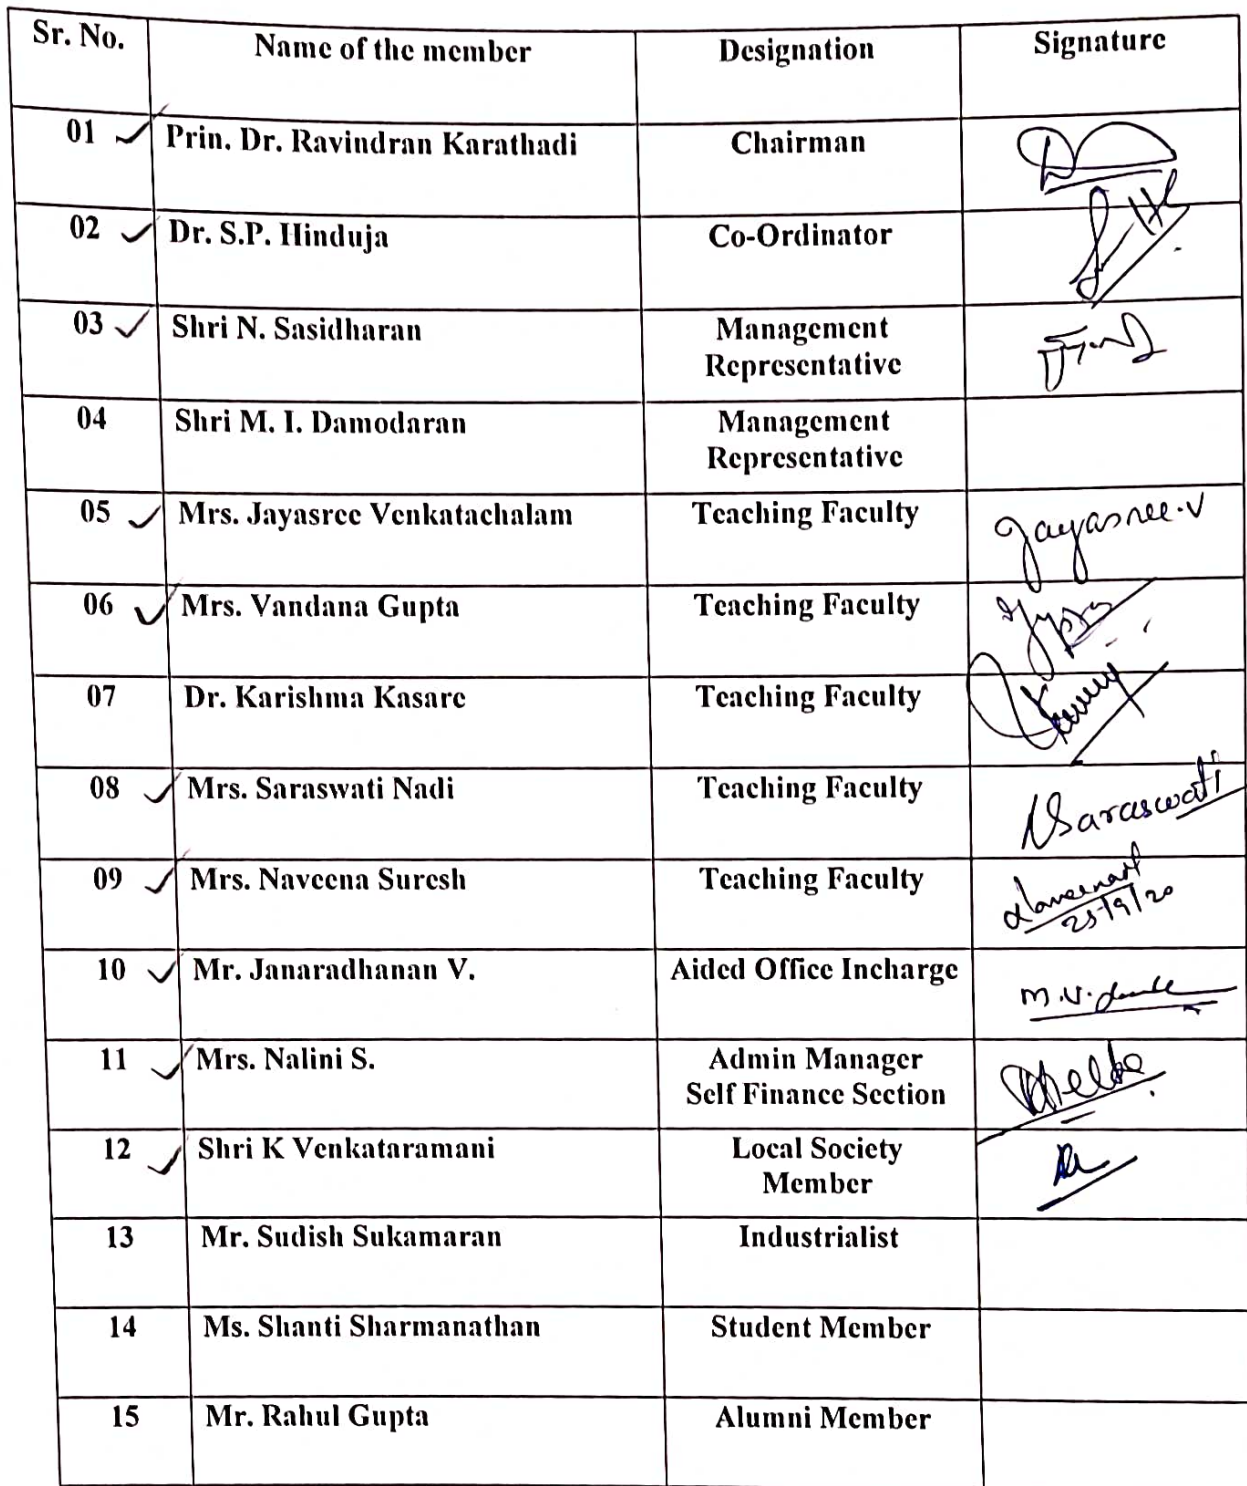 Sr. No. Name of the member Designation Signature
01 Prin. Dr. Ravindran Karathadi Chairman
02 Dr. S.P. Hinduja Co-Ordinator
03 Shri N. Sasidharan Management
Representative
04 Shri M. I. Damodaran Management
Representative
05 Mrs. Jayasree Venkatachalam Teaching Faculty Jayasree.V
06 Mrs. Vandana Gupta Teaching Faculty
07 Dr. Karishma Kasare Teaching Faculty
08 Mrs. Saraswati Nadi Teaching Faculty NSaraswati
09 Mrs. Naveena Suresh Teaching Faculty
25/9/20
10 Mr. Janaradhanan V. Aided Office Incharge M.V.
11 Mrs. Nalini S. Admin Manager
Self Finance Section
12 Shri K Venkataramani Local Society
Member
13 Mr. Sudish Sukamaran Industrialist
14 Ms. Shanti Sharmanathan Student Member
15 Mr. Rahul Gupta Alumni Member